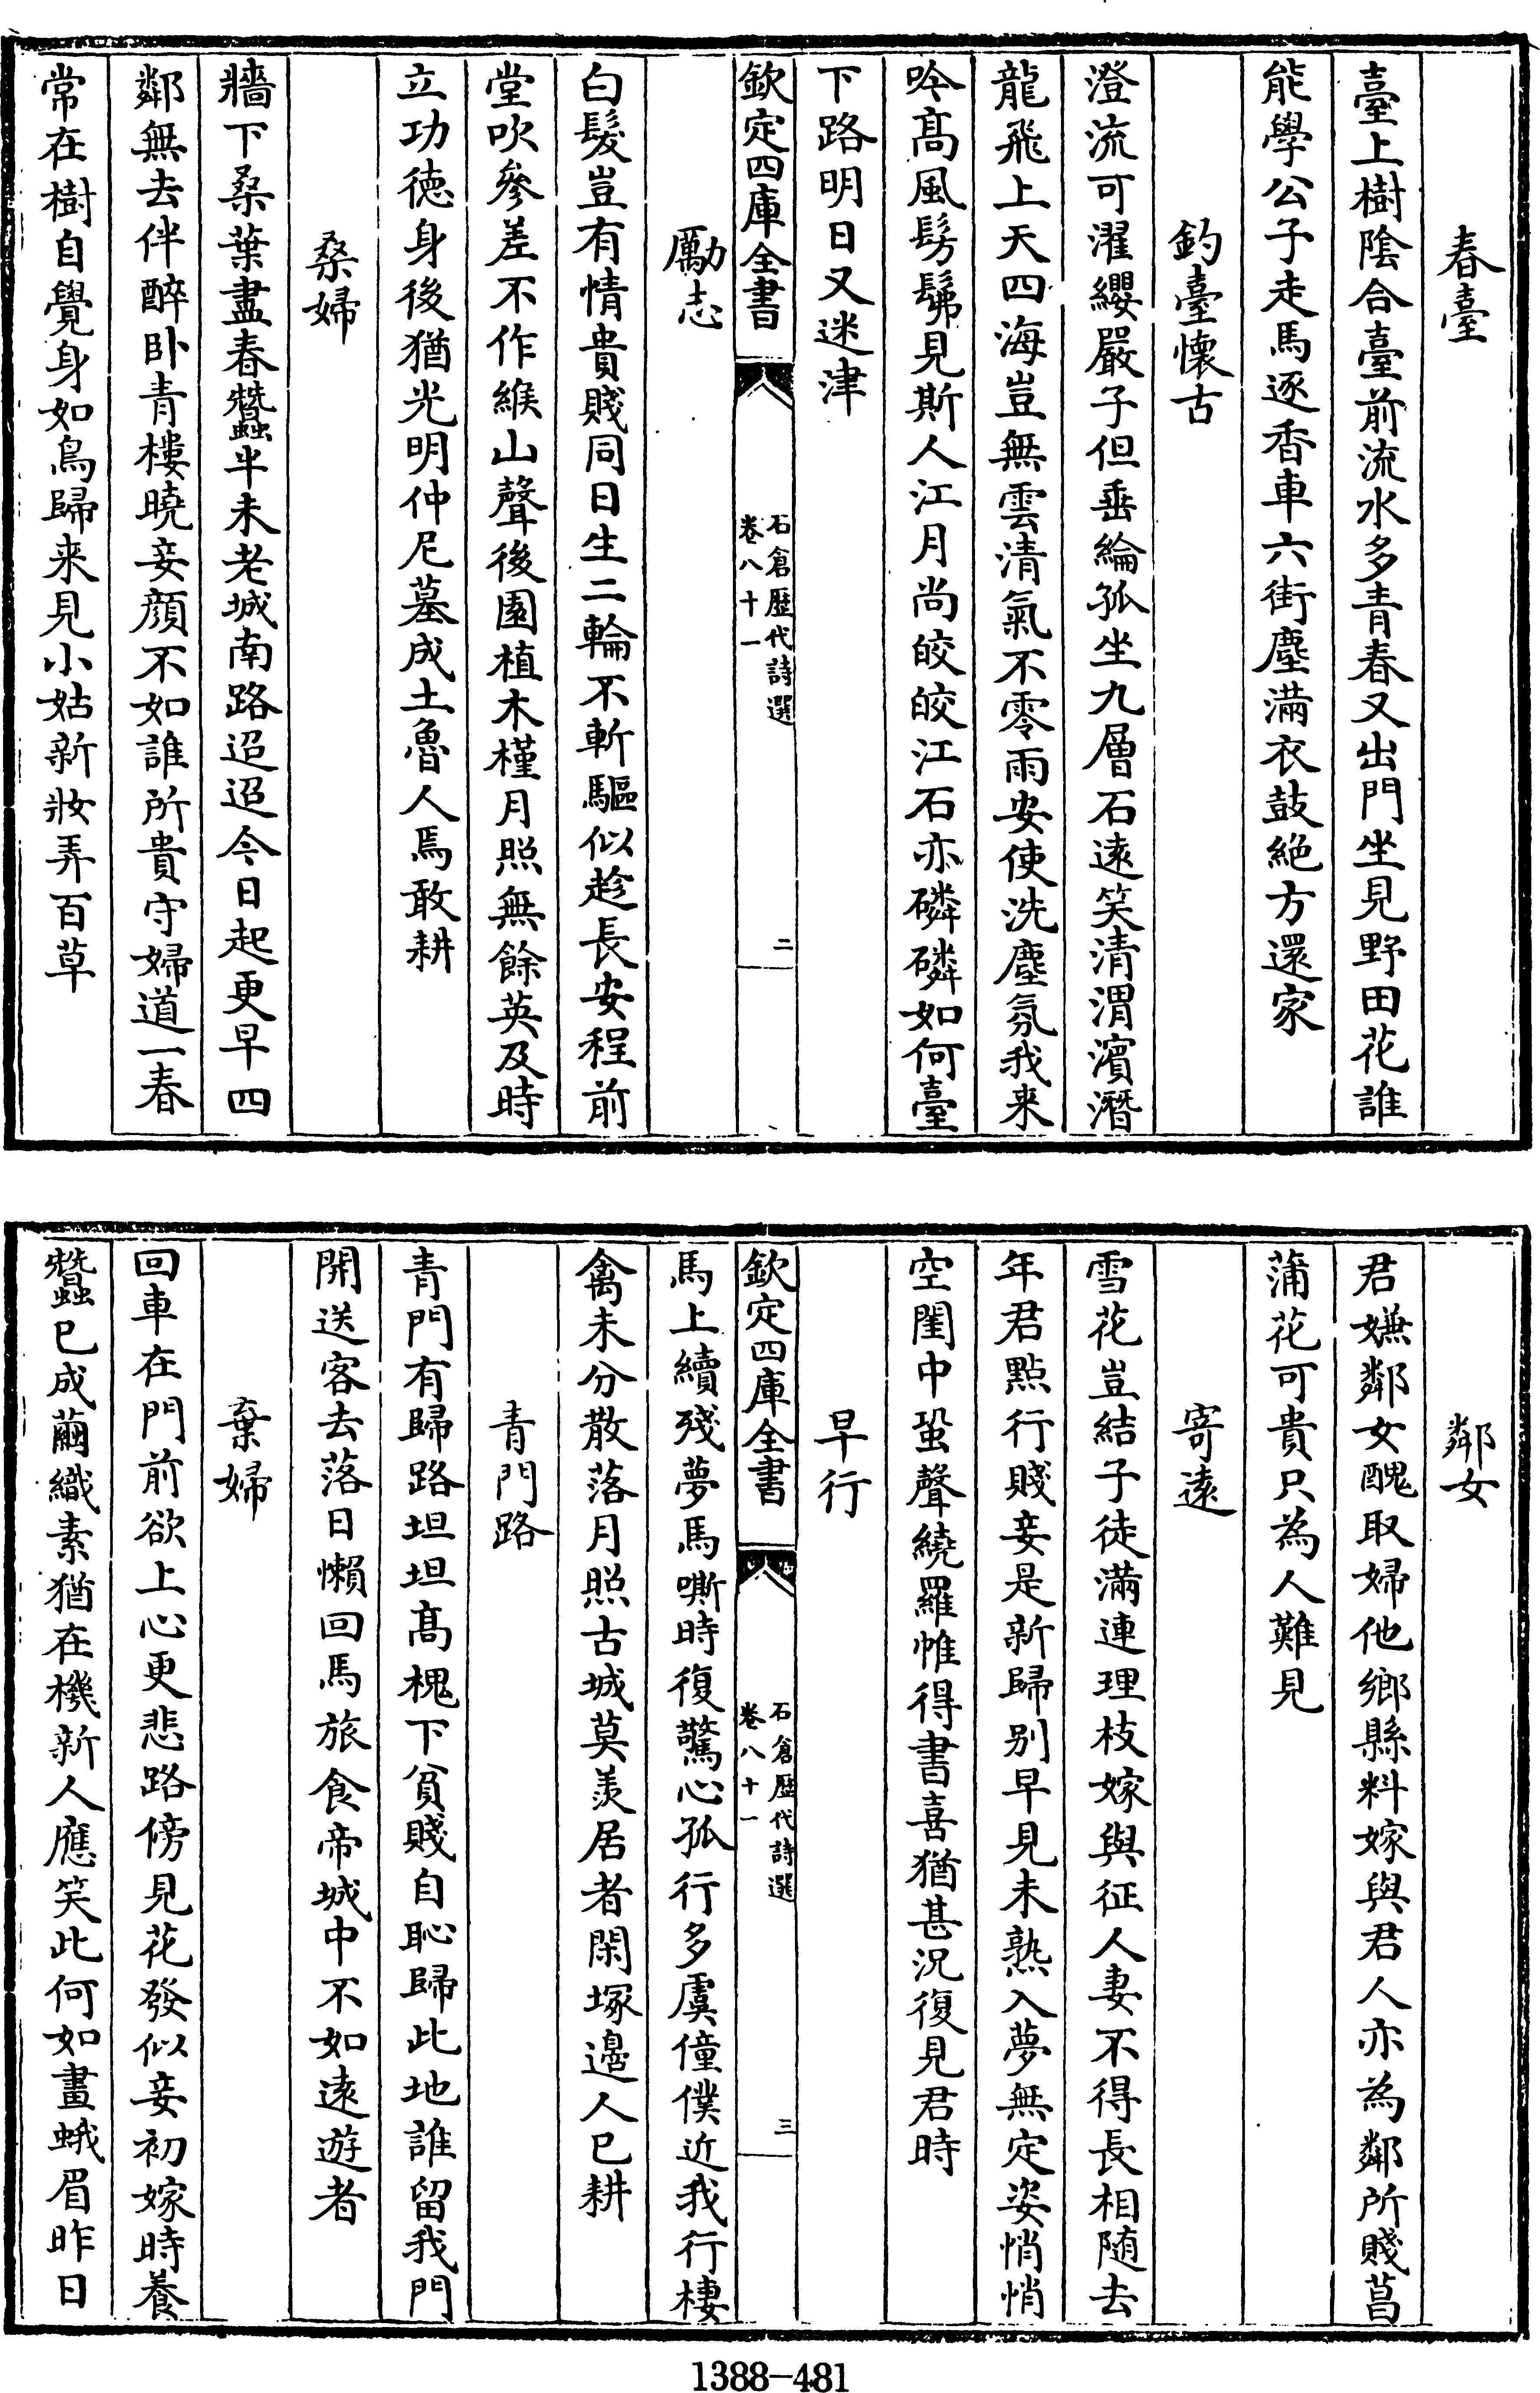 春臺
臺上樹陰合臺前流水多青春又出門坐見野田花誰
能學公子走馬逐香車六街塵滿衣鼓絶方還家
釣臺懷古
澄流可濯纓嚴子但垂綸孤坐九層石遠笑清渭濱潛
龍飛上天四海豈無雲清氣不零雨安使洗塵氛我来
吟髙風髣髴見斯人江月尚皎皎江石亦磷磷如何臺
下路明日又迷津
欽定四庫全書
石倉歴代詩選
卷八十一
二
勵志
白髮豈有情貴賤同日生二輪不斬驅似趁長安程前
堂吹參差不作緱山聲後園植木槿月照無餘英及時
立功德身後猶光明仲尼墓成土魯人焉敢耕
桑婦
牆下桑葉盡春蠶半未老城南路迢迢今日起更早四
鄰無去伴醉卧青樓曉妾顔不如誰所貴守婦道一春
常在樹自覺身如鳥歸来見小姑新妝弄百草
鄰女
君嫌鄰女醜取婦他鄉縣料嫁與君人亦為鄰所賤菖
蒲花可貴只為人難見
寄遠
雪花豈結子徒滿連理枝嫁與征人妻不得長相随去
年君點行賤妾是新歸别早見未熟入夢無定姿悄悄
空閨中蛩聲繞羅帷得書喜猶甚況復見君時
早行
欽定四庫全書
石倉歴代詩選
卷八十一
三
馬上續殘夢馬嘶時復驚心孤行多虞僮僕近我行棲
禽未分散落月照古城莫羨居者閑塚邊人已耕
青門路
青門有歸路坦坦髙槐下貧賤自恥歸此地誰留我門
開送客去落日懶回馬旅食帝城中不如遠遊者
棄婦
回車在門前欲上心更悲路傍見花發似妾初嫁時養
蠶已成繭織素猶在機新人應笑此何如畫蛾眉昨日
1388-481